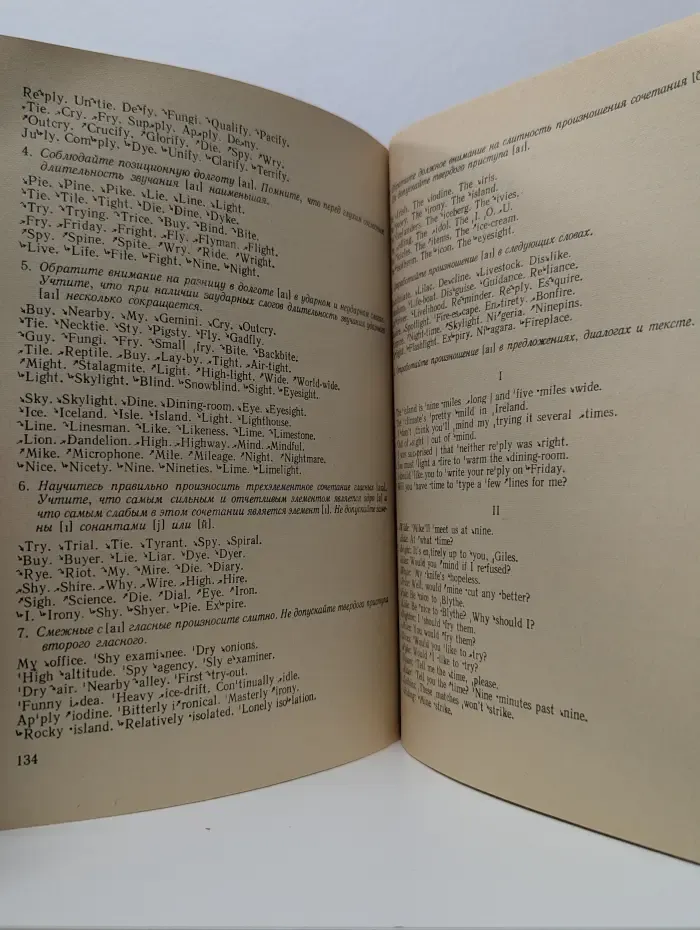 Re⸌ply. Un⸌tie. De⸌fy. ⸌Fungi. ⸌Qualify. ⸌Pacify.
Tie. Cry. Fry. Supply. Apply. Deny.
Outcry. Crucify. Glorify. Die. Spy. Wry.
July. Comply. Dye. Unify. Clarify. Terrify.
4. Соблюдайте позиционную долготу [aı]. Помните, что перед глухим согласным
длительность звучания [aı] наименьшая.
Pie. Pine. Pike. Lie. Line. Light.
Tie. Tile. Tight. Die. Dine. Dyke.
Try. Trying. Trice. Buy. Bind. Bite.
Fry. Friday. Fright. Fly. Flyman. Flight.
Spy. Spine. Spite. Wry. Ride. Wright.
Live. Life. File. Fight. Nine. Night.
5. Обратите внимание на разницу в долготе [aı] в ударном и неударном слогах.
Учтите, что при наличии заударных слогов длительность звучания ударного
[aı] несколько сокращается.
Buy. Nearby. My. Gemini. Cry. Outcry.
Tie. Necktie. Sty. Pigsty. Fly. Gadfly.
Guy. Fungi. Fry. Small fry. Bite. Backbite.
Tile. Reptile. Buy. Lay-by. Tight. Air-tight.
Might. Stalagmite. Light. High-light. Wide. World-wide.
Light. Skylight. Blind. Snowblind. Sight. Eyesight.
Sky. Skylight. Dine. Dining-room. Eye. Eyesight.
Ice. Iceland. Isle. Island. Light. Lighthouse.
Line. Linesman. Like. Likeness. Lime. Limestone.
Lion. Dandelion. High. Highway. Mind. Mindful.
Mike. Microphone. Mile. Mileage. Night. Nightmare.
Nice. Nicety. Nine. Nineties. Lime. Limelight.
6. Научитесь правильно произносить трехэлементное сочетание гласных
Учтите, что самым сильным и отчетливым элементом является ядро [a] и
что самым слабым в этом сочетании является элемент [ı]. Не допускайте заме-
ны [ı] сонантами [j] или [й].
Try. Trial. Tie. Tyrant. Spy. Spiral.
Buy. Buyer. Lie. Liar. Dye. Dyer.
Rye. Riot. My. Mire. Die. Diary.
Shy. Shire. Why. Wire. High. Hire.
Sigh. Science. Die. Dial. Eye. Iron.
I. Irony. Shy. Shyer. Pie. Expire.
7. Смежные с [aı] гласные произносите слитно. Не допускайте твердого приступа
второго гласного.
My office. Shy examinee. Dry onions.
High altitude. Spy agency. Sly examiner.
Dry air. Nearby alley. First try-out.
Funny idea. Heavy ice-drift. Continually idle.
Apply iodine. Bitterly ironical. Masterly irony.
Rocky island. Relatively isolated. Lonely isolation.
134
должное внимание на слитность произношения сочетания
твердого приступа [aı].
The iodine. The iris.
The irony. The island.
The iceberg. The ivies.
The idol. The I. O. U.
The items. The ice-cream.
The icon. The eyesight.
произношение [aı] в следующих словах.
Lilac. Decline. Livestock. Dislike.
Life-boat. Disguise. Guidance. Reliance.
Livelihood. Reminder. Reply. Esquire.
Spotlight. Fire-escape. Entirety. Bonfire.
Night-time. Skylight. Nigeria. Ninepins.
Flashlight. Expiry. Niagara. Fireplace.
произношение [aı] в предложениях, диалогах и тексте.
I
The island is nine miles long | and five miles wide.
climate's pretty mild in Ireland.
think you'll mind my trying it several times.
of sight | out of mind.
surprised | that neither reply was right.
light a fire to warm the dining-room.
like you to write your reply on Friday.
Will you have time to type a few lines for me?
II
Mike'll meet us at nine.
At what time?
It's entirely up to you, Giles.
Would you mind if I refused?
My knife's hopeless.
Well, would mine cut any better?
Be nice to Blythe.
Be nice to Blythe? Why should I?
I should fry them.
You would fry them?
Would you like to try?
Would I like to try?
Tell me the time, please.
Tell you the time? Nine minutes past nine.
These matches won't strike.
Mine strike.